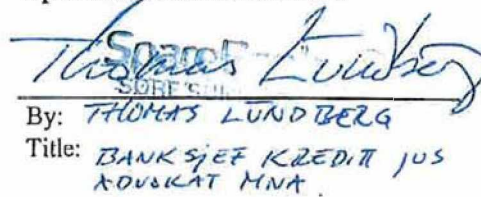 Thomas Lundberg
By: THOMAS LUNDBERG
Title: BANKSJEF KREDITT JUS
ADVOKAT MNA